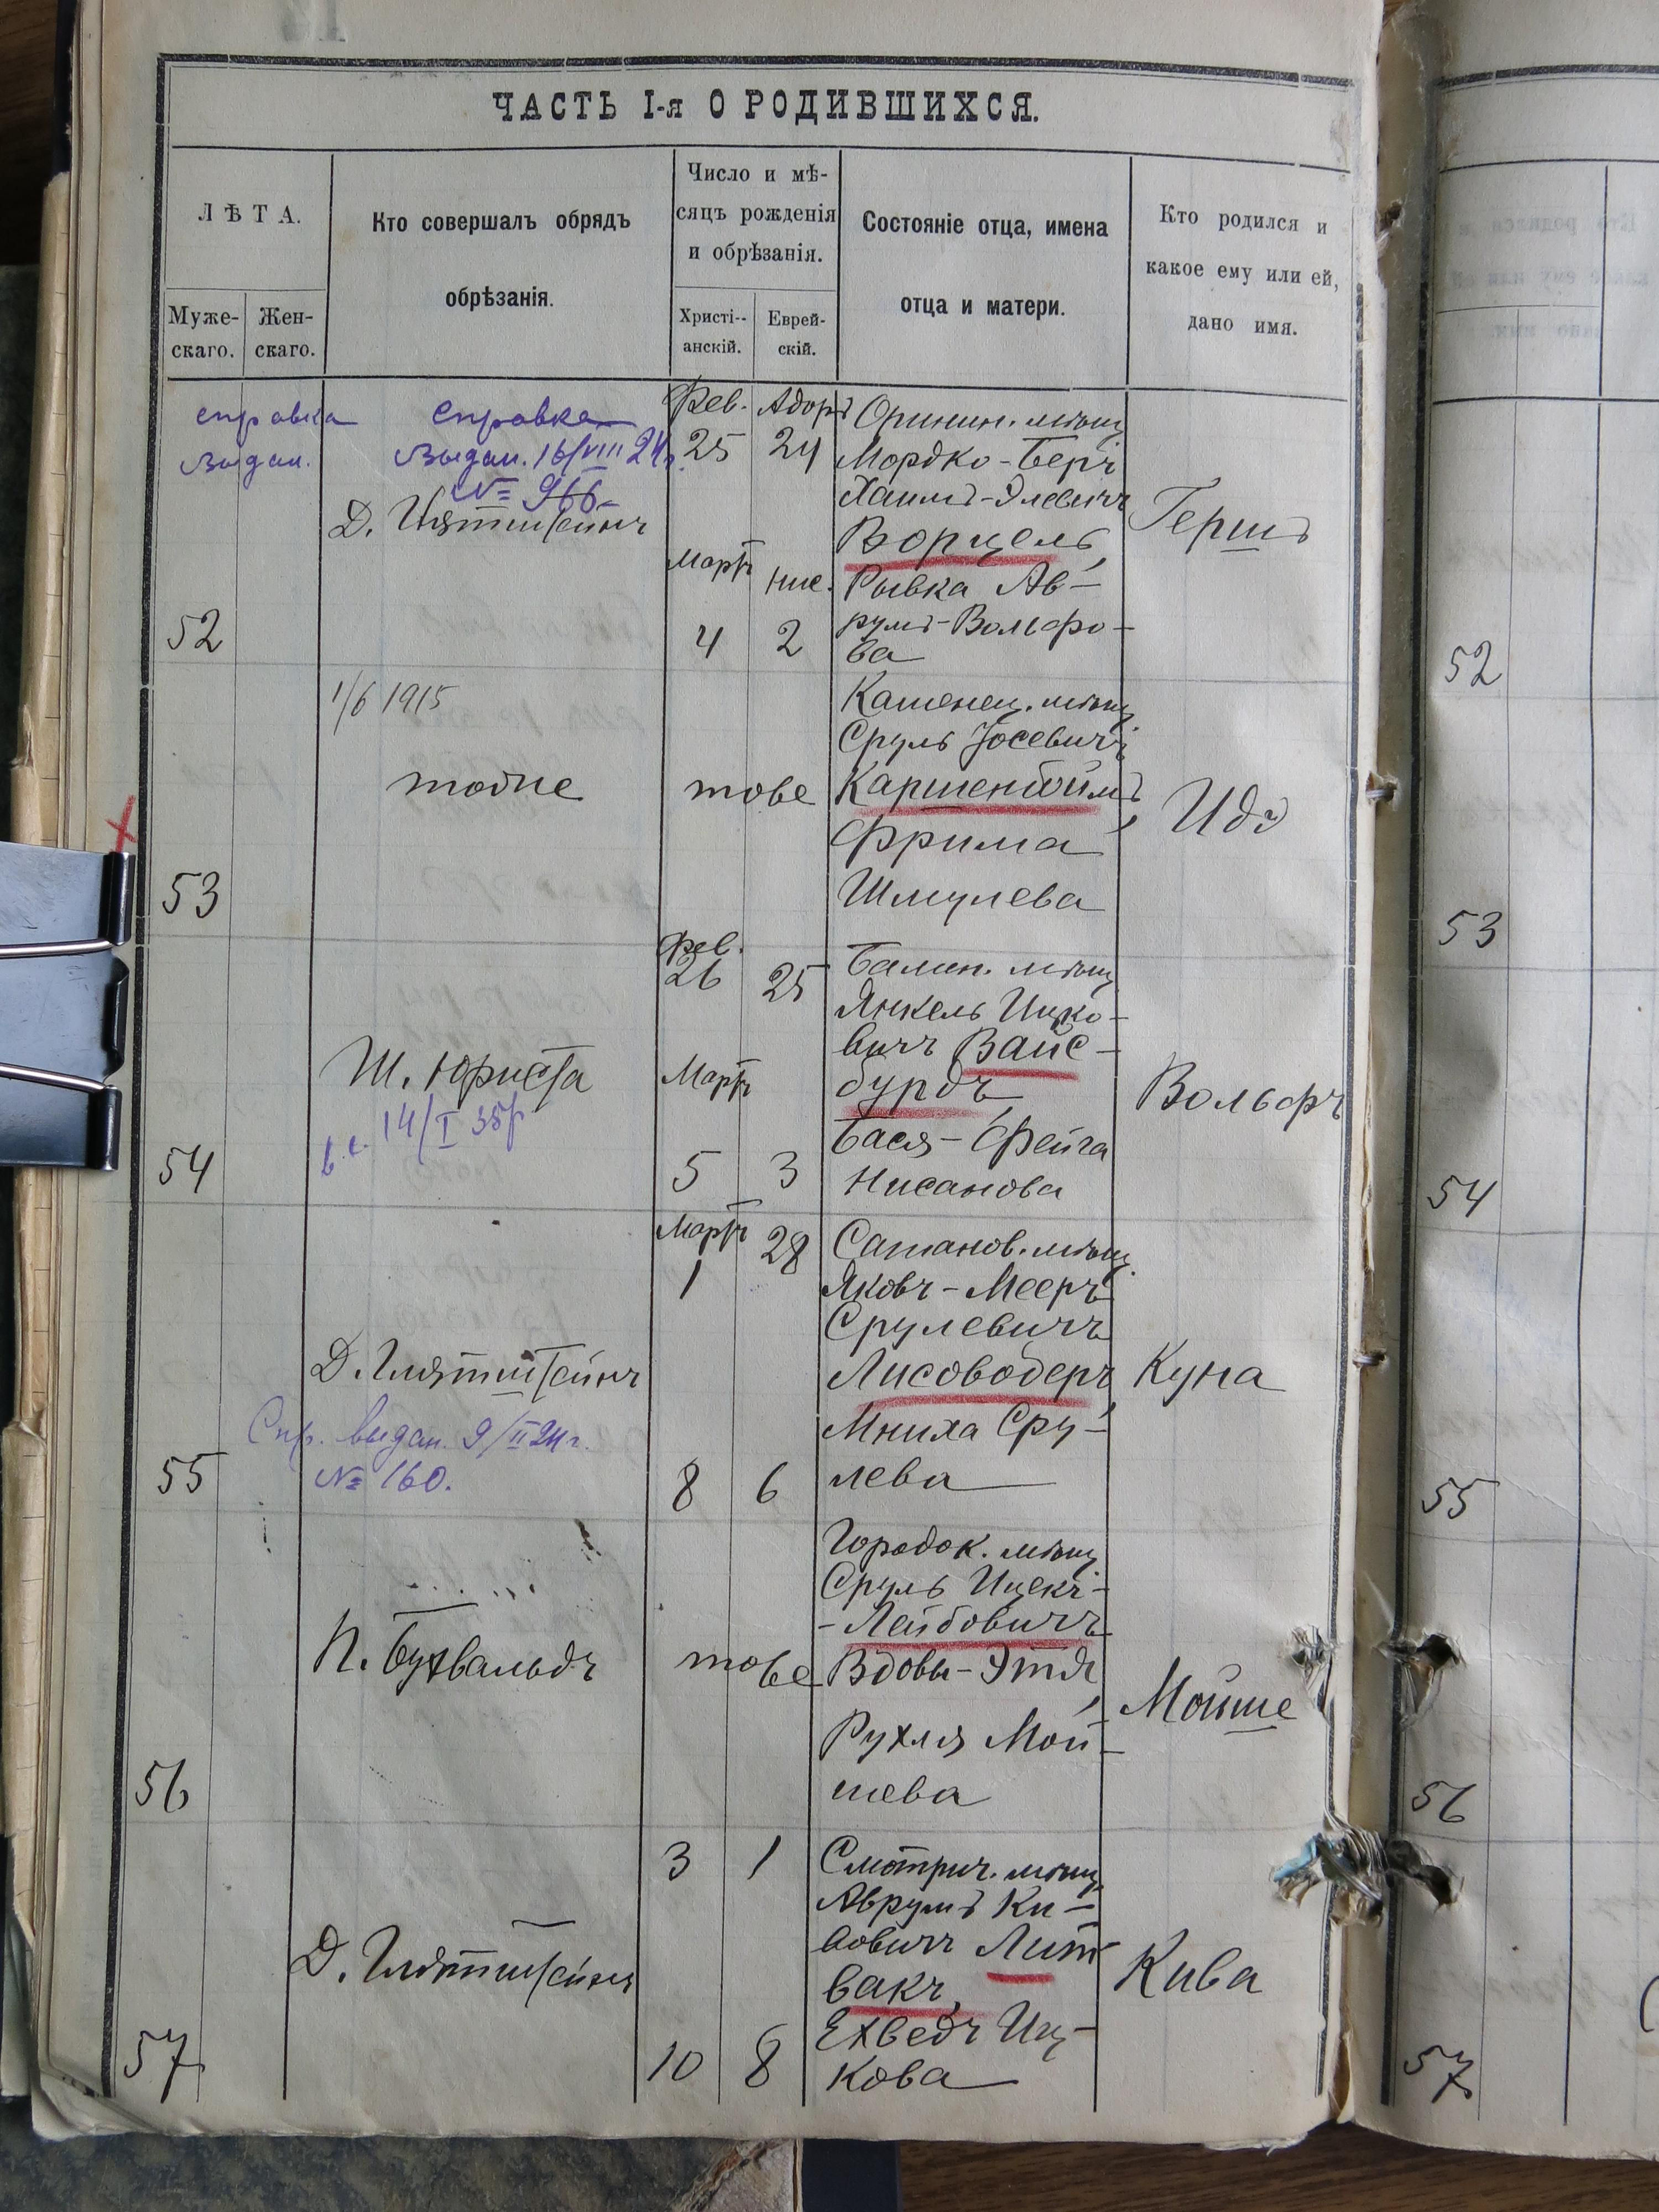 ЧАСТЬ I-я О РОДИВШИХСЯ.
ЛѢТА.
Муже-
скаго.
Жен-
скаго.
Кто совершалъ обрядъ
обрѣзанія.
Число и мѣ-
сяцъ рожденія
и обрѣзанія.
Христі--
анскій.
Еврей-
скій.
Состояніе отца, имена
отца и матери.
Кто родился и
какое ему или ей,
дано имя.
справка
выдан.
справка
выдан. 16/VIII 24г.
№ 966
Д. Глятштейнъ
Фев. Адоръ
25 24
Мартъ Нис.
4 2
Оринин. мѣщ.
Мордко-Беръ
Хаимъ-Элевичъ
Ворцель,
Рывка Ав-
румъ-Вольфо-
ва
Гершъ
52
1/6 1915
тотже
тоже
Каменец. мѣщ.
Сруль Іосевичъ
Каршенбоймъ,
Фрима
Шмулева
Идэ
53
Ш. Юриста
14/I 35г
Фев.
26 25
Мартъ
5 3
Балин. мѣщ.
Янкель Ицко-
вичъ Вайс-
бурдъ,
Бася-Фейга
Нисанова
Вольфъ
54
Д. Глятштейнъ
Спр. выдан. 9/II 24г.
№ 160.
Мартъ 28
1
8 6
Сатанов. мѣщ.
Яковъ-Мееръ
Срулевичъ
Лисоводеръ,
Мниха Сру-
лева
Куна
55
П. Бухвальдъ
тоже
Городок. мѣщ.
Сруль Ицекъ-
-Лейбовичъ
Вдовы-Этля,
Рухля Мой-
шева
Мойше
56
Д. Глятштейнъ
3 1
10 8
Смотрич. мѣщ.
Аврумъ Ки-
вовичъ Лит
вакъ,
Ехведъ Иц-
кова
Кива
57
52
53
54
55
56
57